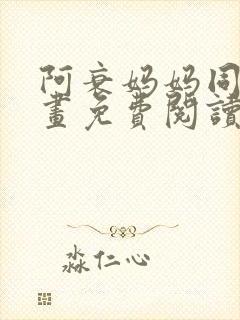 阿衰妈妈同
畫免費閱讀
淼仁心